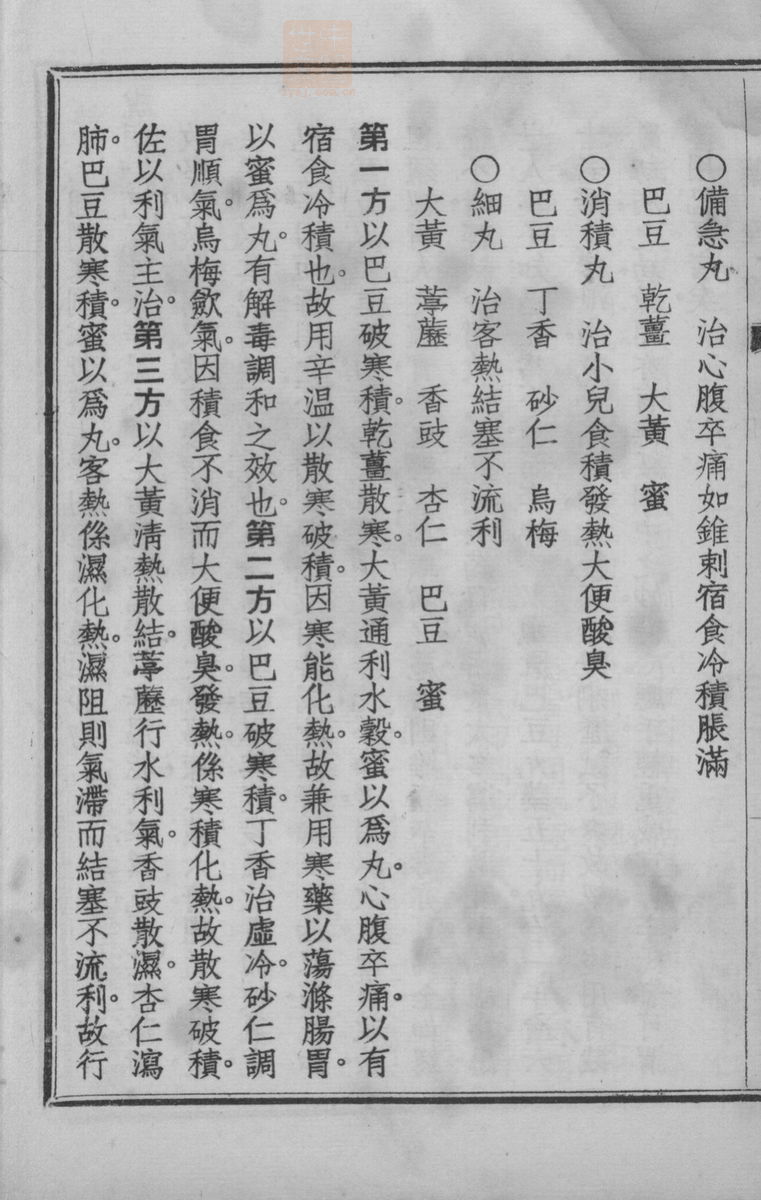 ○備急丸　治心腹卒痛如錐刺宿食冷積脹滿
巴豆　乾薑　大黃　蜜
○消積丸　治小兒食積發熱大便酸臭
巴豆　丁香　砂仁　烏梅
○細丸　治客熱結塞不流利
大黃　葶藶　香豉　杏仁　巴豆　蜜
第一方以巴豆破寒積。乾薑散寒。大黃通利水穀。蜜以爲丸。心腹卒痛。以有
宿食冷積也。故用辛温以散寒破積。因寒能化熱。故兼用寒藥以蕩滌腸胃。
以蜜爲丸。有解毒調和之效也。第二方以巴豆破寒積。丁香治虛冷。砂仁調
胃順氣。烏梅歛氣。因積食不消而大便酸臭。發熱。係寒積化熱。故散寒破積。
佐以利氣主治。第三方以大黃淸熱散結。葶藶行水利氣。香豉散濕。杏仁瀉
肺。巴豆散寒積。蜜以爲丸。客熱係濕化熱。濕阻則氣滯而結塞不流利。故行